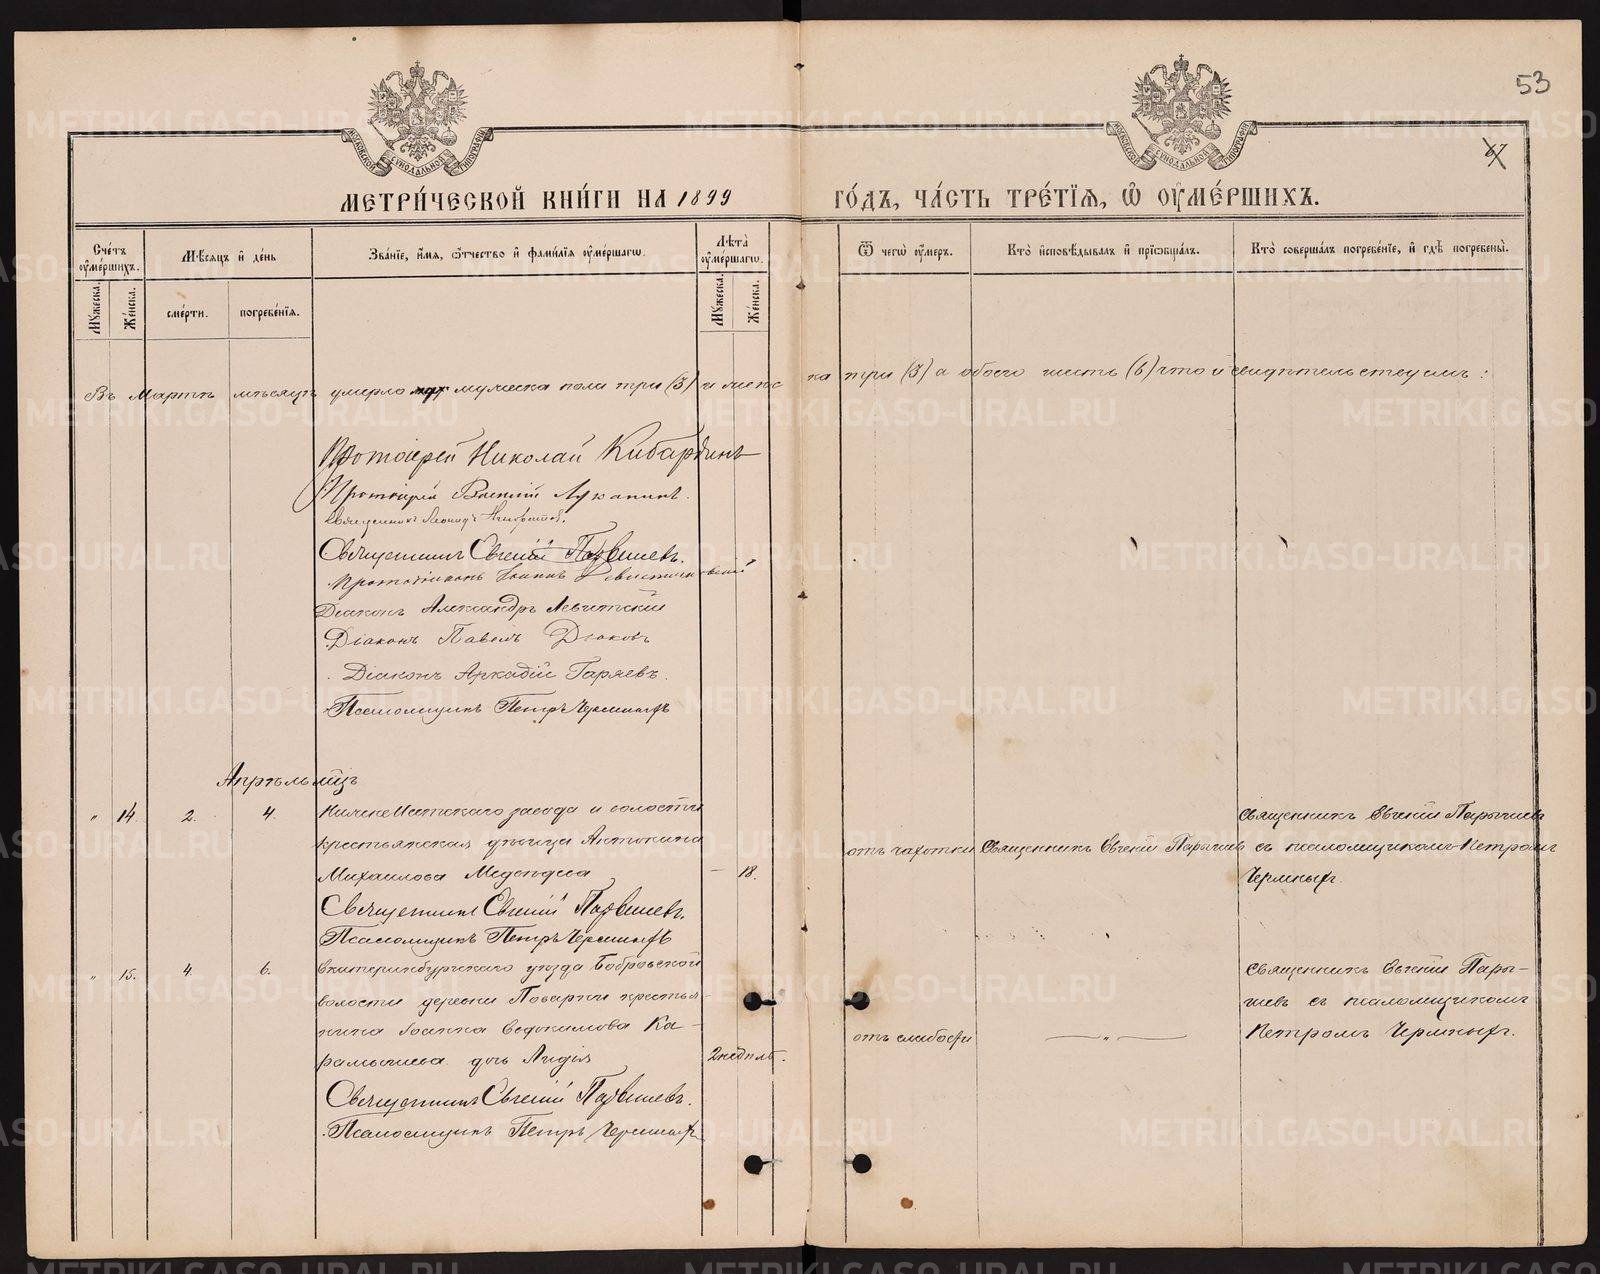 53
67
МОСКОВСКОЙ СѴНОДАЛЬНОЙ ТИПОГРАФІИ
МОСКОВСКОЙ СѴНОДАЛЬНОЙ ТИПОГРАФІИ
МЕТРИ́ЧЕСКОЙ КНИ́ГИ НА 1899 ГО́ДЪ, ЧА́СТЬ ТРЕ́ТІѦ, Ѡ҆ ОУ҆МЕ́РШИХЪ.
Сче́тъ оу҆ме́ршихъ.
Мѣ́сяцъ и҆ де́нь
Зва́нїе, и҆́мя, ѻ҆́тчество и҆ фами́лїя оу҆ме́ршагѡ.
Лѣта̀ оу҆ме́ршагѡ.
Ѿ чегѡ̀ оу҆́меръ.
Кто̀ и҆сповѣ́дывалъ и҆ прїѻбща́лъ.
Кто̀ соверша́лъ погребе́нїе, и҆ гдѣ̀ погребены̀.
Мꙋ́жеска.
Же́нска.
сме́рти.
погребе́нїя.
Мꙋ́жеска.
Же́нска.
Въ Мартѣ мѣсяцѣ умерло мужеска пола три (3) и женска три (3) а обоего шесть (6) что и свидѣтельствуемъ:
Протоіерей Николай Кибардинъ
Протоіерей Василій Луканинъ.
Священникъ Леонидъ
Священникъ Евгеній Парышевъ.
Протодіаконъ Іоаннъ
Діаконъ Александръ Левитскій
Діаконъ Павелъ Дюковъ
Діаконъ Аркадій Гаряевъ.
Псаломщикъ Петръ Черныхъ
Апрѣль мцъ
" 14. 2. 4. Нижнеисетскаго завода и волости
крестьянская дѣвица Антонина
Михайлова Медвѣдева — 18.
отъ чахотки
Священникъ Евгеній Парышевъ
Священникъ Евгеній Парышевъ
съ псаломщикомъ Петромъ
Черныхъ.
Священникъ Евгеній Парышевъ.
Псаломщикъ Петръ Черныхъ
" 15. 4. 6. Екатеринбургскаго уѣзда Бобровской
волости деревни Поварни крестья-
нина Іоанна Евдокимова Ка-
рамышева дочь Лидія
2 недѣль.
отъ слабости
— " —
Священникъ Евгеній Пары-
шевъ съ псаломщикомъ
Петромъ Черныхъ.
Священникъ Евгеній Парышевъ.
Псаломщикъ Петръ Черныхъ
METRIKI.GASO-URAL.RU